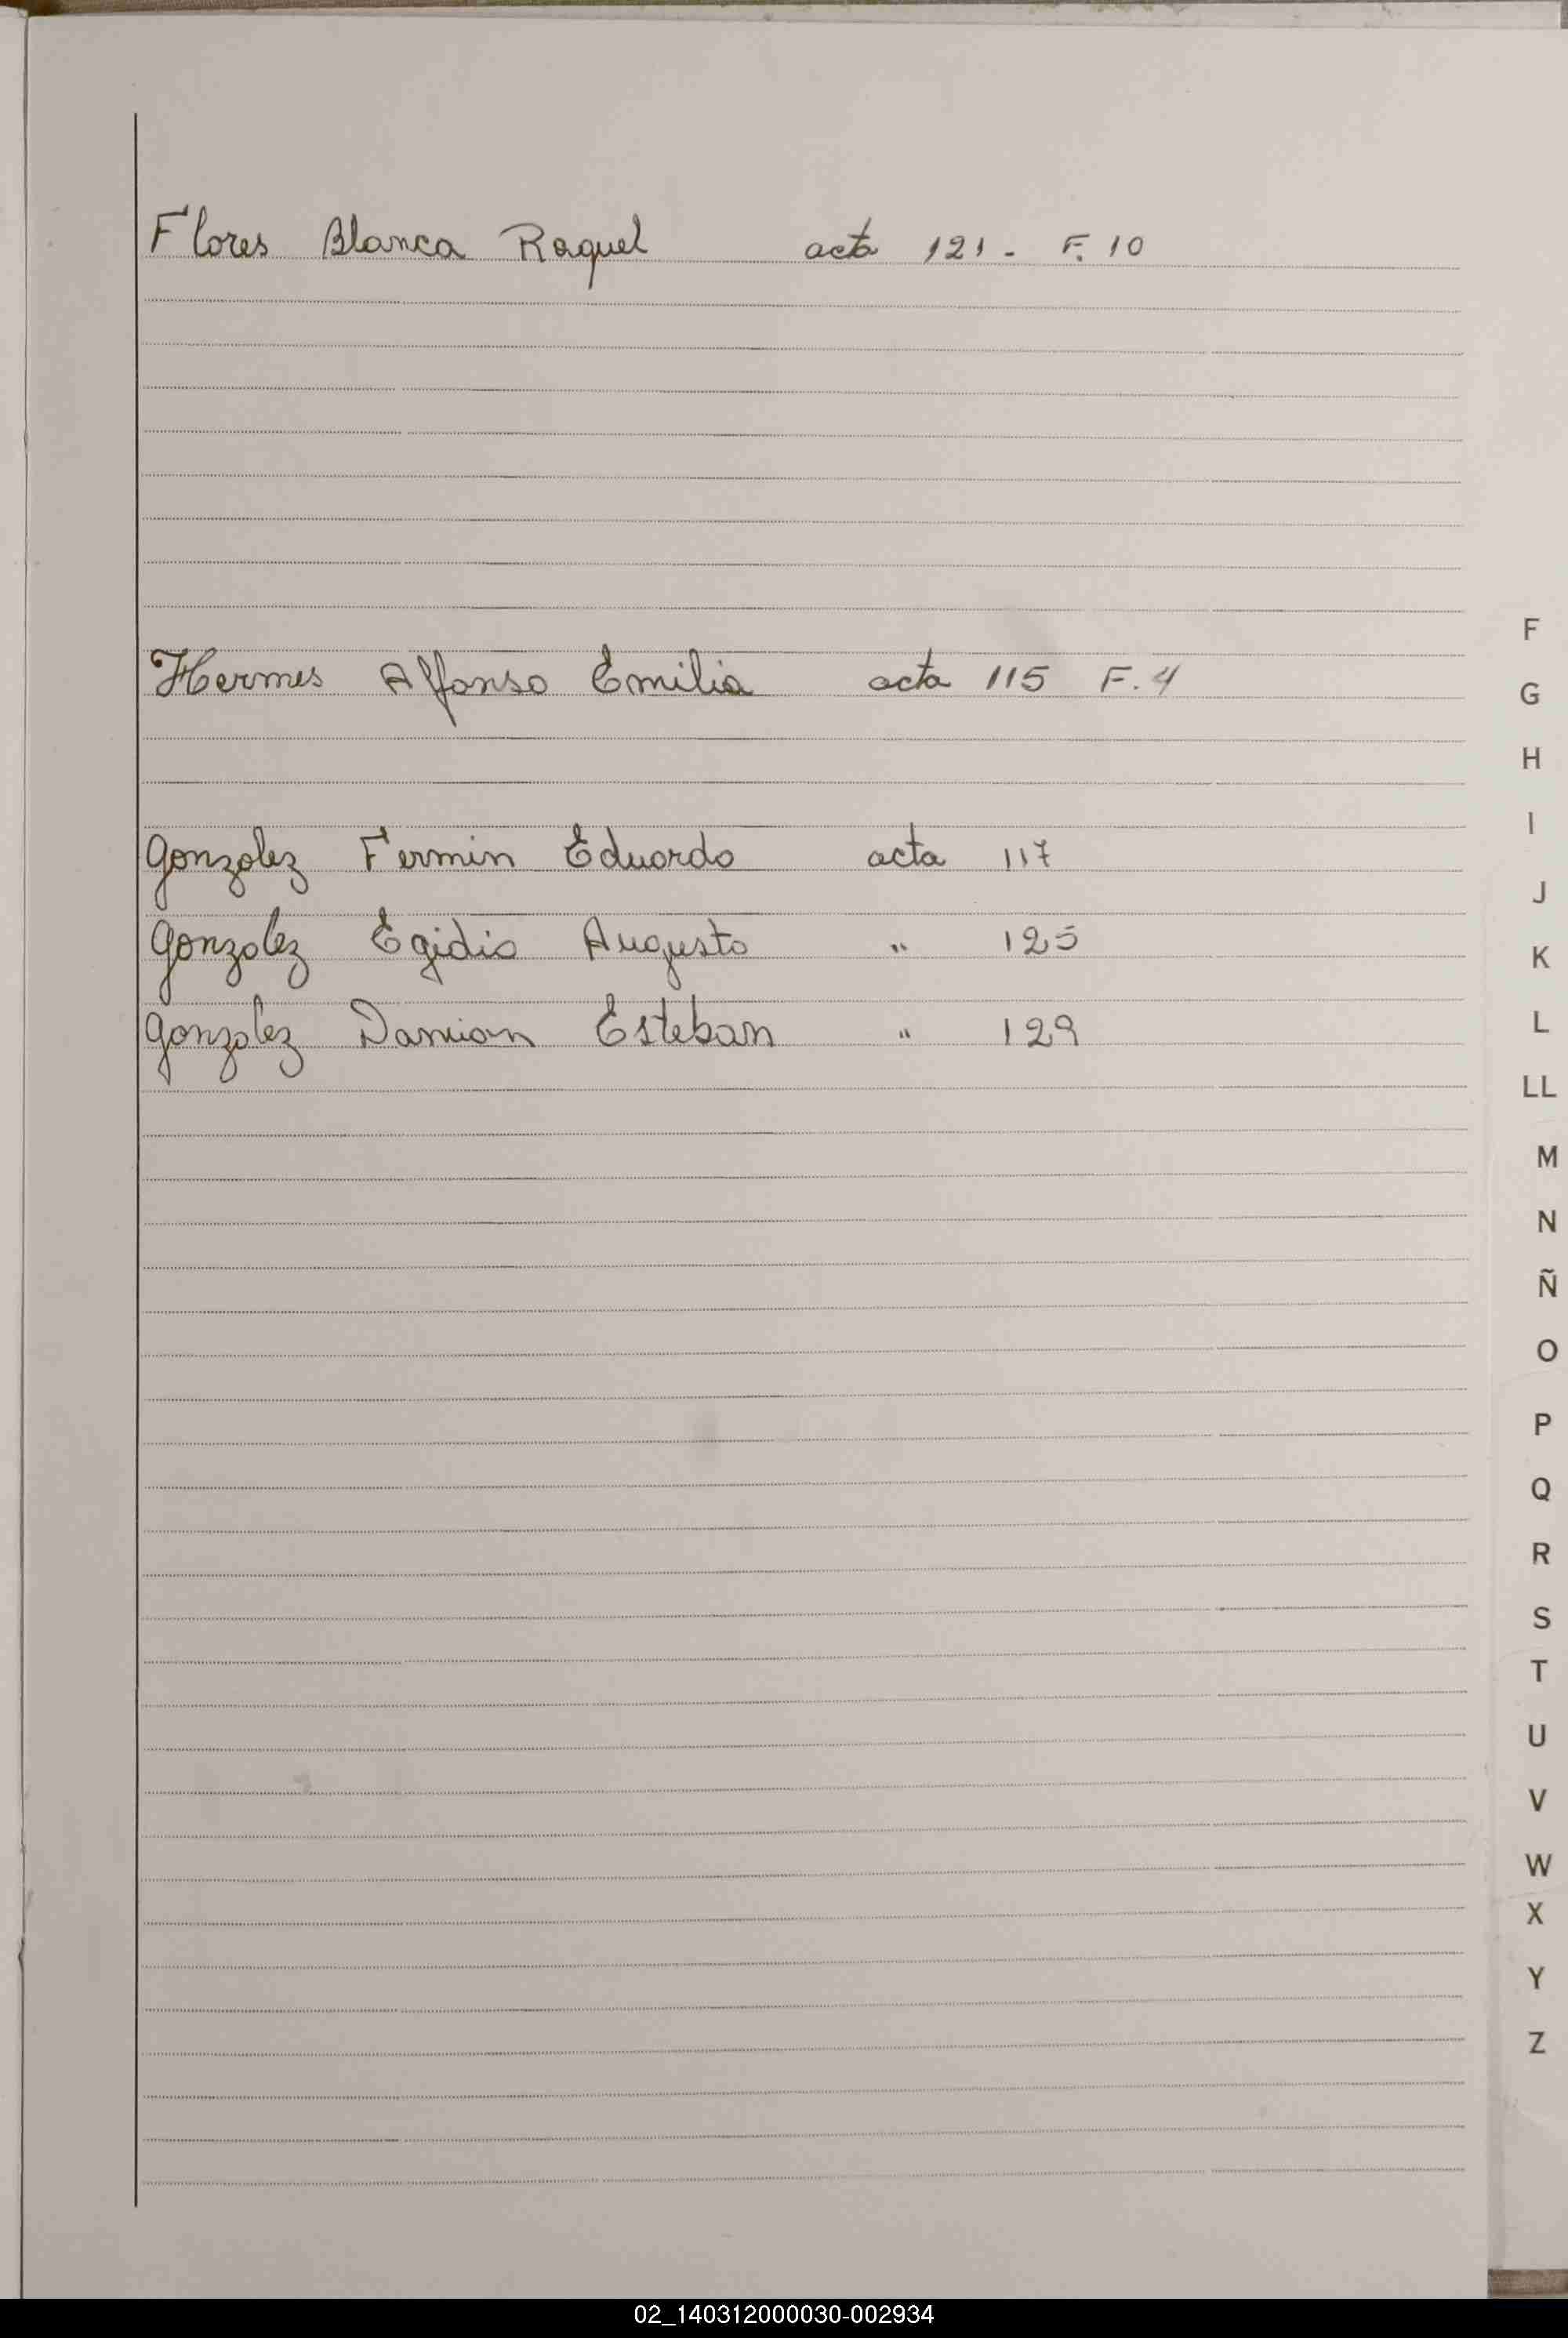 Flores Blanca Raquel acta 121 - F. 10
Hermes Alfonso Emilia acta 115 F. 4
Gonzalez Fermin Eduardo acta 117
Gonzalez Egidio Augusto " 125
Gonzalez Damian Esteban " 129
F
G
H
I
J
K
L
LL
M
N
Ñ
O
P
Q
R
S
T
U
V
W
X
Y
Z
02_140312000030-002934